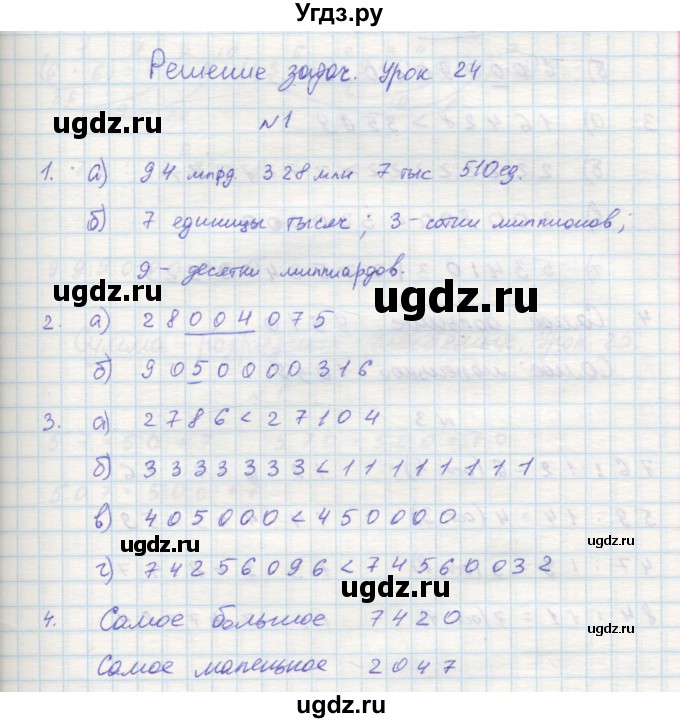 Угдз.ру
Решение задач. Урок 24
ugdz.ru
ugdz.ru
№1
1. а) 94 млрд 328 млн 7 тыс 510 ед.
б) 7 единицы тысяч; 3 - сотни миллионов;
9 - десятки миллиардов.
ugdz.ru
ugdz.ru
2. а) 28004075
б) 9050000316
3. а) 2786 < 27104
б) 3333333 < 111111111
в) 405000 < 450000
ugdz.ru
ugdz.ru
г) 74256096 < 74560032
ugdz.ru
4. Самое большое 7420
ugdz.ru
Самое маленькое 2047
ugdz.ru